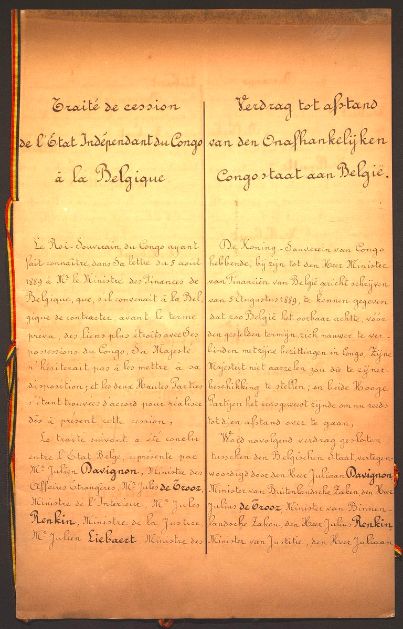 Traité de cession
de l'État Indépendant du Congo
à la Belgique
Le Roi-Souverain du Congo ayant
fait connaître, dans Sa lettre du 5 août
1889 à Mr le Ministre des Finances de
Belgique, que, s'il convenait à la Bel
gique de contracter, avant le terme
prévu, des liens plus étroits avec Ses
possessions du Congo, Sa Majesté
n'hésiterait pas à les mettre à sa
disposition, et les deux Hautes Parties
s'étant trouvées d'accord pour réaliser
dès à présent cette cession,
Le traité suivant a été conclu
entre l'État Belge, représenté par
Mr Julien Davignon, Ministre des
Affaires Étrangères, Mr Jules de Trooz,
Ministre de l'Intérieur, Mr Jules
Renkin, Ministre de la Justice
Mr Julien Liebaert, Ministre des
Verdrag tot afstand
van den Onafhankelijken
Congostaat aan België.
De Koning-Souverein van Congo
hebbende, bij zijn tot den Heer Minister
van Financiën van België gericht schrijven
van 5 Augustus 1889, te kennen gegeven
dat zoo België het oorbaar achtte, vóór
den gestelden termijn, zich nauwer te ver-
binden met zijne bezittingen in Congo, Zijne
Majesteit niet aarzelen zou die te zijner
beschikking te stellen, en beide Hooge
Partijen het eens geweest zijnde om nu reeds
tot dien afstand over te gaan,
Werd navolgend verdrag gesloten
tusschen den Belgischen Staat, vertegen-
woordigd door den Heer Juliaan Davignon
Minister van Buitenlandsche Zaken, den Heer
Julius de Trooz, Minister van Binnen-
landsche Zaken, den Heer Julius Renkin
Minister van Justitie, den Heer Juliaan